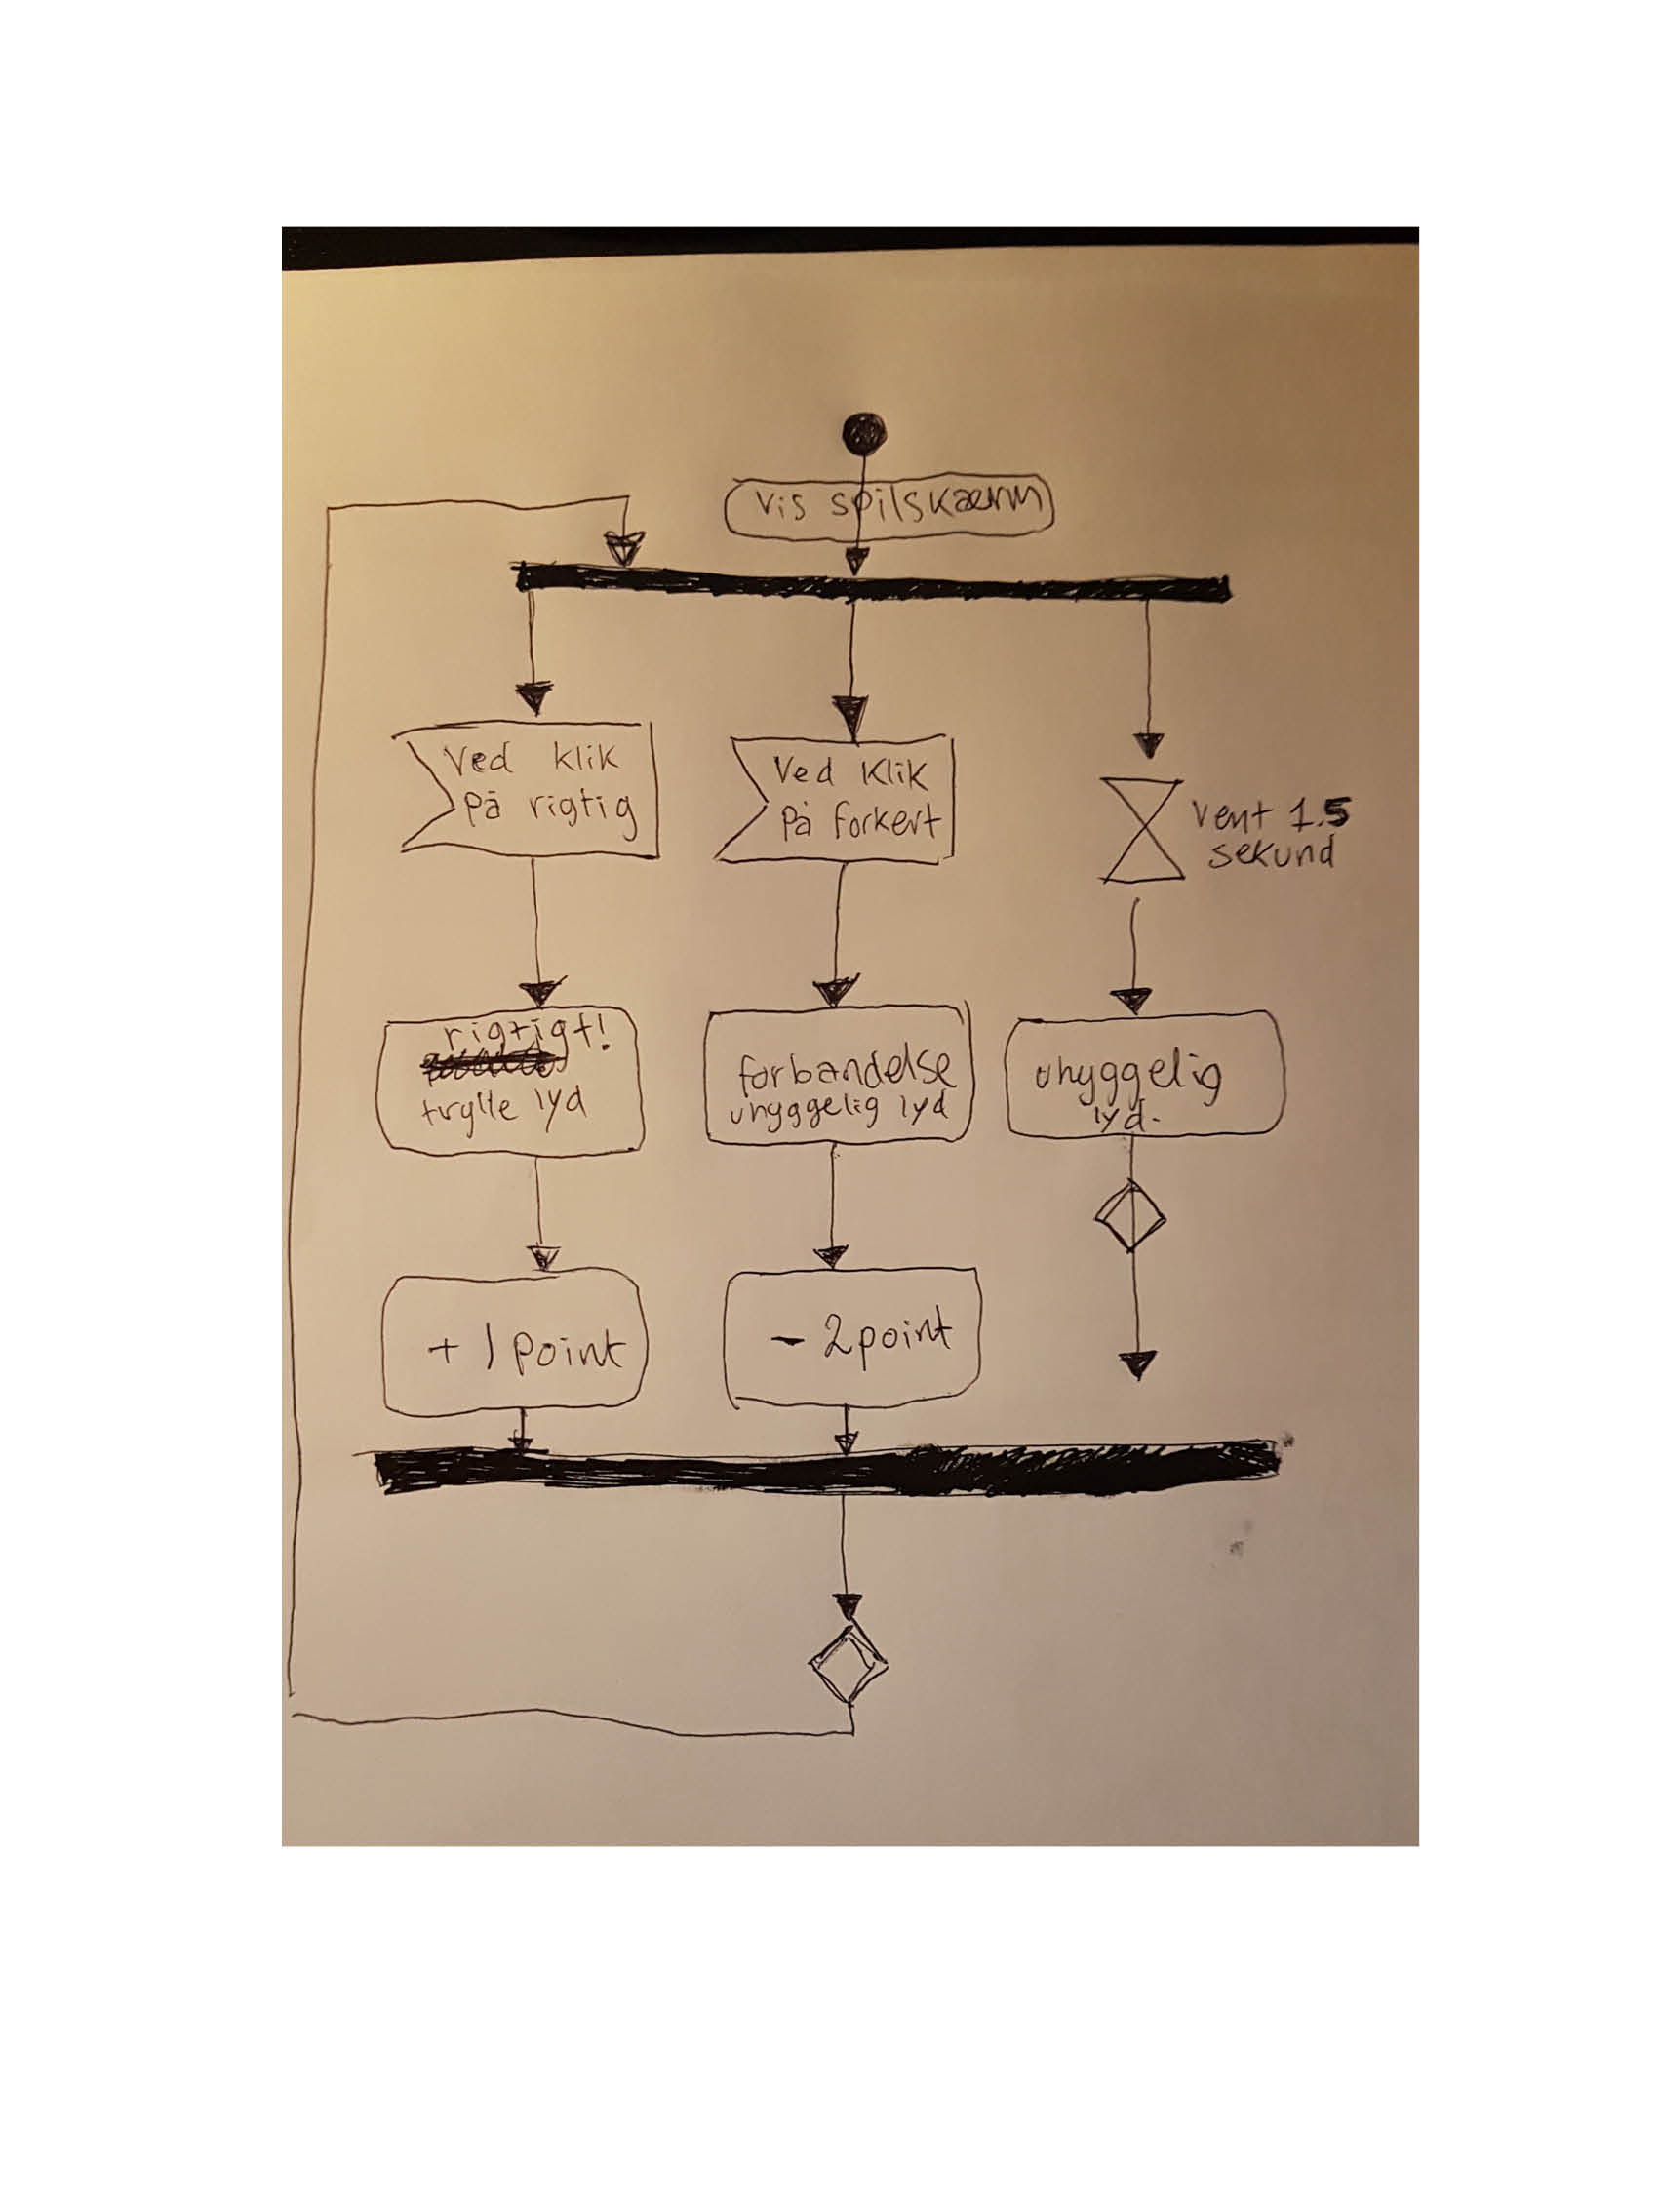 vis spilskærm
Ved klik
på rigtig
Ved Klik
På forkert
Vent 1.5
sekund
rigtigt!
trylle lyd
forbandelse
uhyggelig lyd
uhyggelig
lyd.
+ 1 point
- 2 point